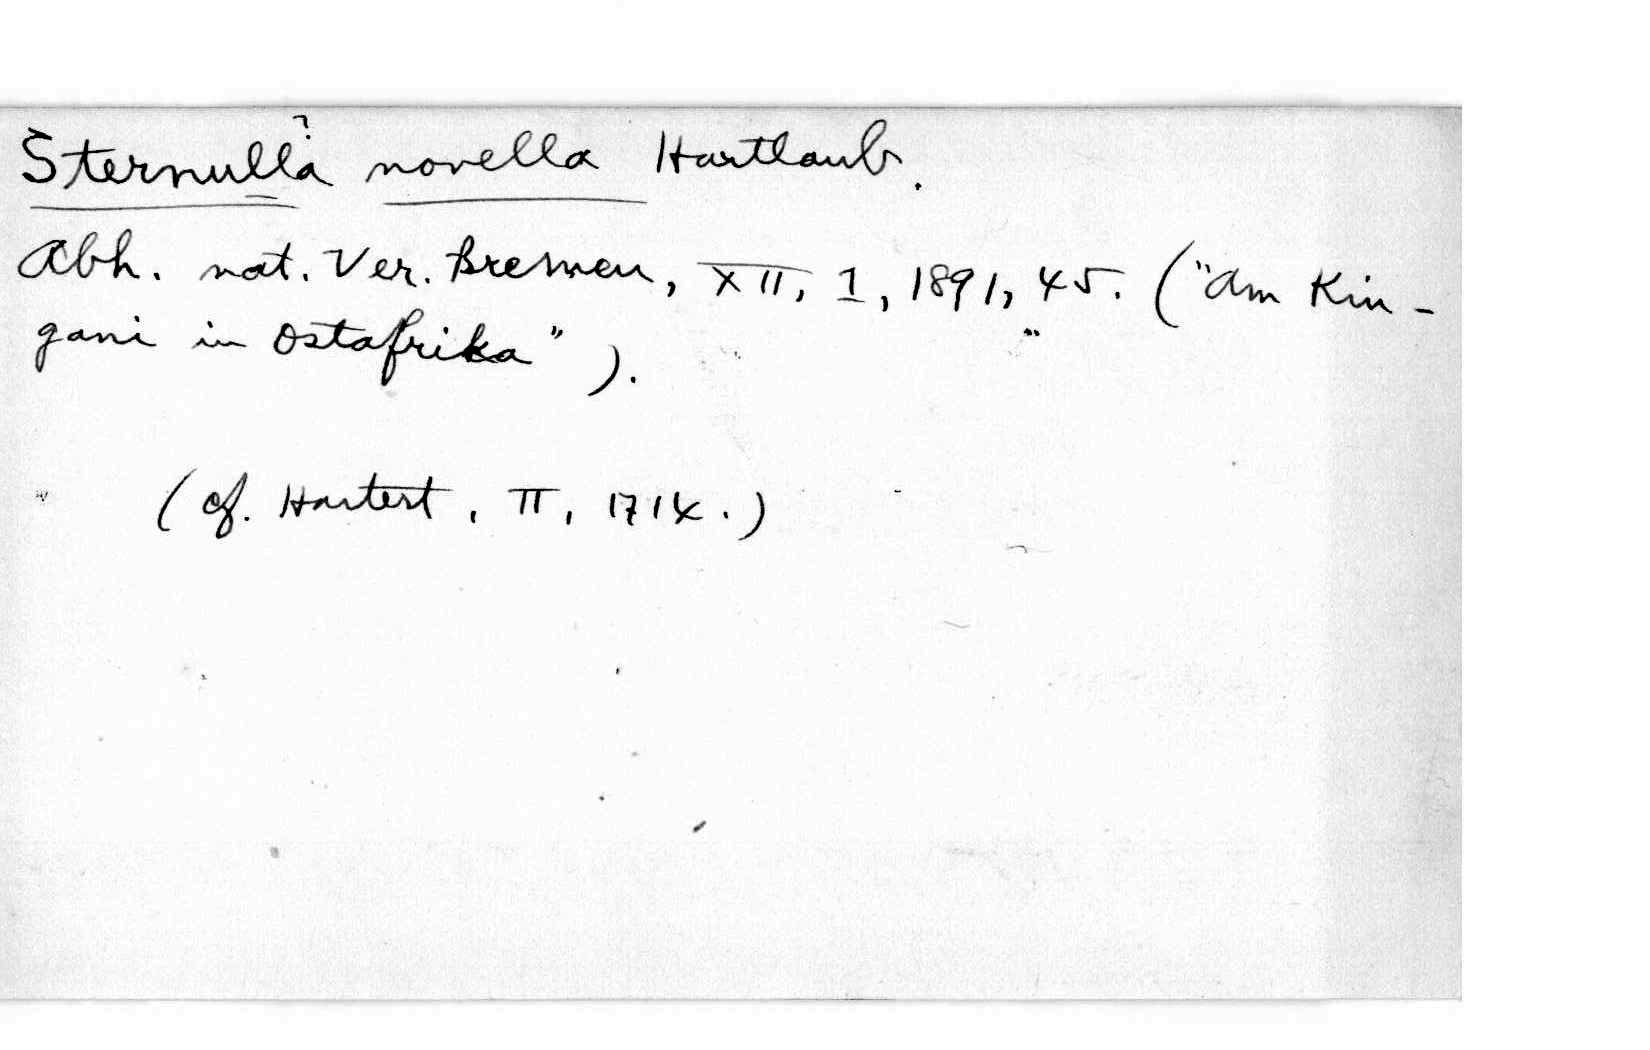 Sternulla? novella Hartlaub.
Abh. nat. Ver. Bremen, XII, 1, 1891, 45. ("Am Kin-
gani in Ostafrika").
(cf. Hartert, II, 1714.)